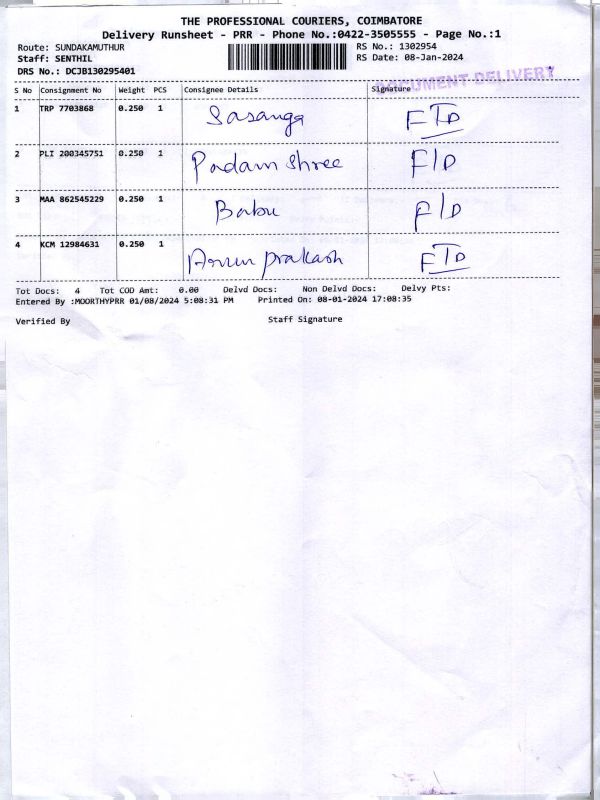 THE PROFESSIONAL COURIERS, COIMBATORE
Delivery Runsheet - PRR - Phone No.:0422-3505555 - Page No.:1
Route: SUNDAKAMUTHUR RS No.: 1302954
Staff: SENTHIL RS Date: 08-Jan-2024
DRS No.: DCJB130295401
DOCUMENT DELIVERY
S No Consignment No Weight PCS Consignee Details Signature
1 TRP 7703868 0.250 1 Sasanga FTD
2 PLI 200345751 0.250 1 Padam Shree F/D
3 MAA 862545229 0.250 1 Babu F/D
4 KCM 12984631 0.250 1 Arun prakash FTD
Tot Docs: 4 Tot COD Amt: 0.00 Delvd Docs: Non Delvd Docs: Delvy Pts:
Entered By :MOORTHYPRR 01/08/2024 5:08:31 PM Printed On: 08-01-2024 17:08:35
Verified By Staff Signature